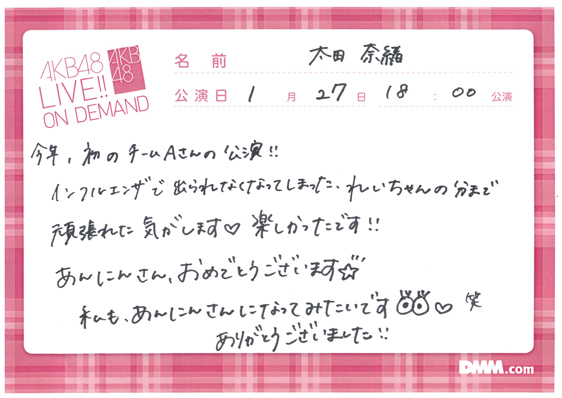 AKB48
LIVE!!
ON DEMAND
AKB
48
名前 太田 奈緒
公演日 1月 27日 18:00 公演
今年、初のチームAさんの公演!!
インフルエンザで出られなくなってしまった、れいちゃんの分まで
頑張れた気がします♡ 楽しかったです!!
あんにんさん、おめでとうございます☆
私も、あんにんさんになってみたいです♡ 笑
ありがとうございました!!
DMM.com